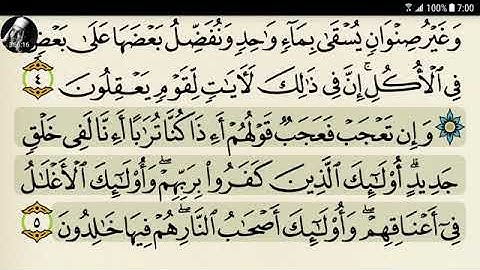 7:00
وَغَيْرُ صِنْوَانٍ يُسْقَىٰ بِمَاءٍ وَاحِدٍ وَنُفَضِّلُ بَعْضَهَا عَلَىٰ بَعْضٍ
فِي الْأُكُلِ ۚ إِنَّ فِي ذَٰلِكَ لَآيَاتٍ لِّقَوْمٍ يَعْقِلُونَ ٤
وَإِن تَعْجَبْ فَعَجَبٌ قَوْلُهُمْ أَءِذَا كُنَّا تُرَابًا أَءِنَّا لَفِي خَلْقٍ
جَدِيدٍ ۗ أُولَٰئِكَ الَّذِينَ كَفَرُوا بِرَبِّهِمْ ۖ وَأُولَٰئِكَ الْأَغْلَالُ
فِي أَعْنَاقِهِمْ ۖ وَأُولَٰئِكَ أَصْحَابُ النَّارِ ۖ هُمْ فِيهَا خَالِدُونَ ٥